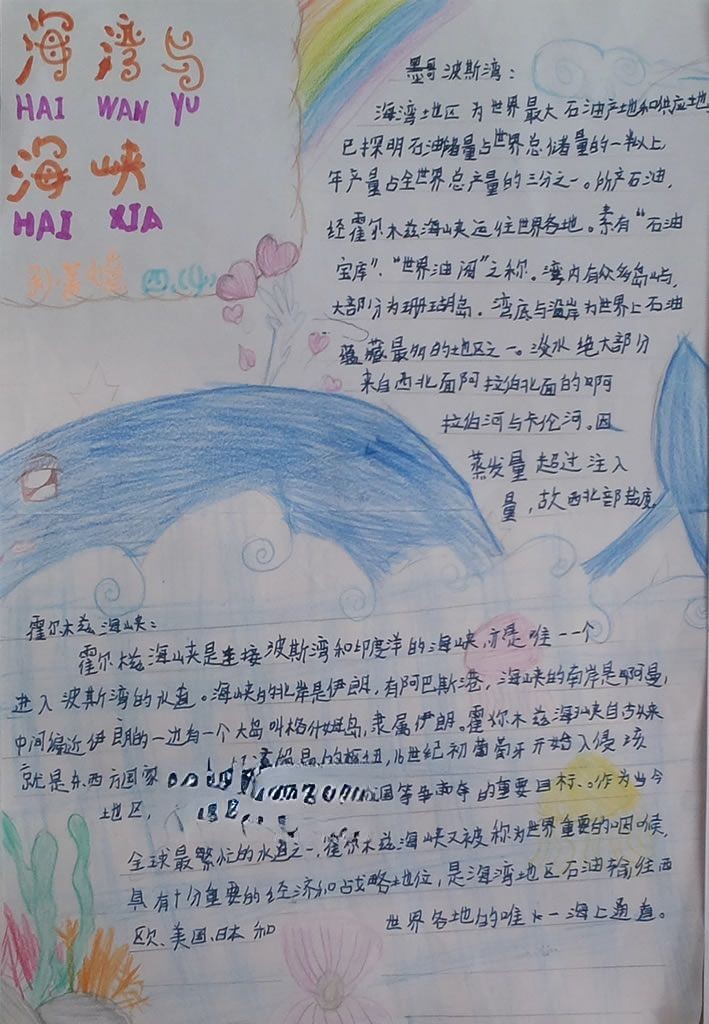 海湾与
HAI WAN YU
海峡
HAI XIA
四.(4)
墨哥波斯湾：
海湾地区为世界最大石油产地和供应地
已探明石油储量占世界总储量的一半以上
年产量占全世界总产量的三分之一。所产石油，
经霍尔木兹海峡运往世界各地。素有“石油
宝库”、“世界油阀”之称。湾内有众多岛屿，
大部分为珊瑚岛．湾底与沿岸为世界上石油
蕴藏最多的地区之一。淡水绝大部分
来自西北面阿拉伯北面的啊
拉伯河与卡伦河。因
蒸发量超过注入
量，故西北部盐度
霍尔木兹海峡：
霍尔木兹海峡是连接波斯湾和印度洋的海峡，亦是唯一一个
进入波斯湾的水道。海峡的北岸是伊朗，有阿巴斯港，海峡的南岸是啊曼，
中间偏近伊朗的一边有一个大岛叫格什姆岛，隶属伊朗。霍尔木兹海峡自古以来
就是东西方国家 的枢纽，16世纪初葡萄牙开始入侵该
地区， 国等争夺的重要目标。作为当今
全球最繁忙的水道之一，霍尔木兹海峡又被称为世界重要的咽喉，
具有十分重要的经济和战略地位，是海湾地区石油输往西
欧、美国、日本和 世界各地的唯一海上通道。